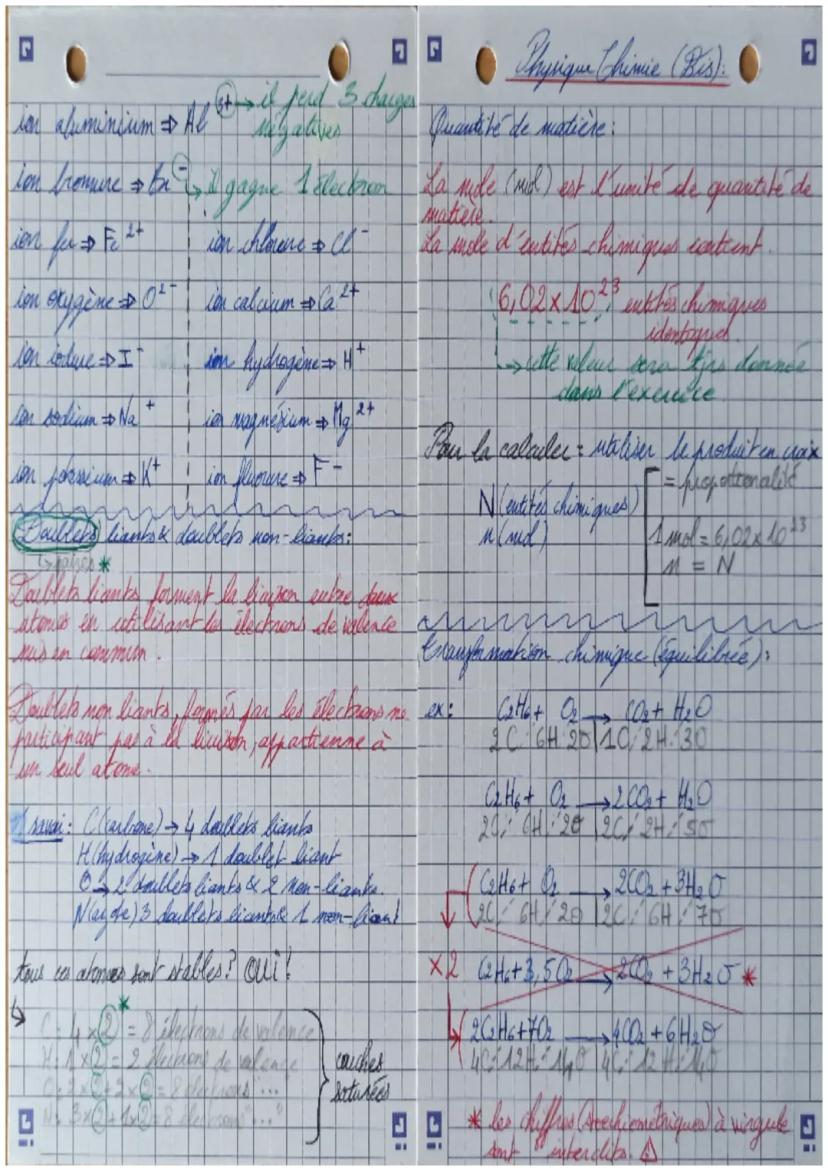 ion aluminium ⇒ Al 3+ → il perd 3 charges
négatives
ion bromure ⇒ Br - ↳ il gagne 1 électron
ion fer ⇒ Fe 2+
ion chlorure ⇒ Cl -
ion oxygène ⇒ O 2-
ion calcium ⇒ Ca 2+
ion iodure ⇒ I -
ion hydrogène ⇒ H +
ion sodium ⇒ Na +
ion magnésium ⇒ Mg 2+
ion potassium ⇒ K+
ion fluorure ⇒ F -
Doublets liants & doublets non-liants :
↳ paires *
Doublets liants forment la liaison entre deux
atomes en utilisant les électrons de valence
mis en commun.
Doublets non liants, formés par les électrons ne
participant pas à la liaison, appartienne à
un seul atome.
À savoir : C (carbone) → 4 doublets liants
H (hydrogène) → 1 doublet liant
O → 2 doublets liants & 2 non-liants.
N (azote) 3 doublets liants & 1 non-liant
tous ces atomes sont stables? OUI!
↳ C : 4 x 2 * = 8 électrons de valence
H : 1 x 2 = 2 électrons de valence
O : 2 x 2 + 2 x 2 = 8 électrons "..."
N : 3 x 2 + 1 x 2 = 8 électrons "..."
couches
saturées
Physique Chimie (Bis) :
Quantité de matière :
La mole (mol) est l'unité de quantité de
matière.
La mole d'entités chimiques contient.
6,02 x 10 23 entités chimiques
identiques.
↳ cette valeur sera tjrs donnée
dans l'exercice
Pour la calculer = utiliser le produit en croix
= proportionnalité
N (entités chimiques)
n (mol)
1 mol = 6,02 x 10 23
n = N
transformation chimique (équilibrée) :
ex : C2H6 + O2 → CO2 + H2O
2C / 6H / 2O | 1C / 2H / 3O
C2H6 + O2 → 2CO2 + H2O
2C / 6H / 2O | 2C / 2H / 5O
C2H6 + O2 → 2CO2 + 3H2O
2C / 6H / 2O | 2C / 6H / 7O
x2 C2H6 + 3,5O2 → 2CO2 + 3H2O *
2C2H6 + 7O2 → 4CO2 + 6H2O
4C / 12H / 14O 4C / 12H / 14O
* les chiffres (stœchiométriques) à virgule
sont interdits. ⚠